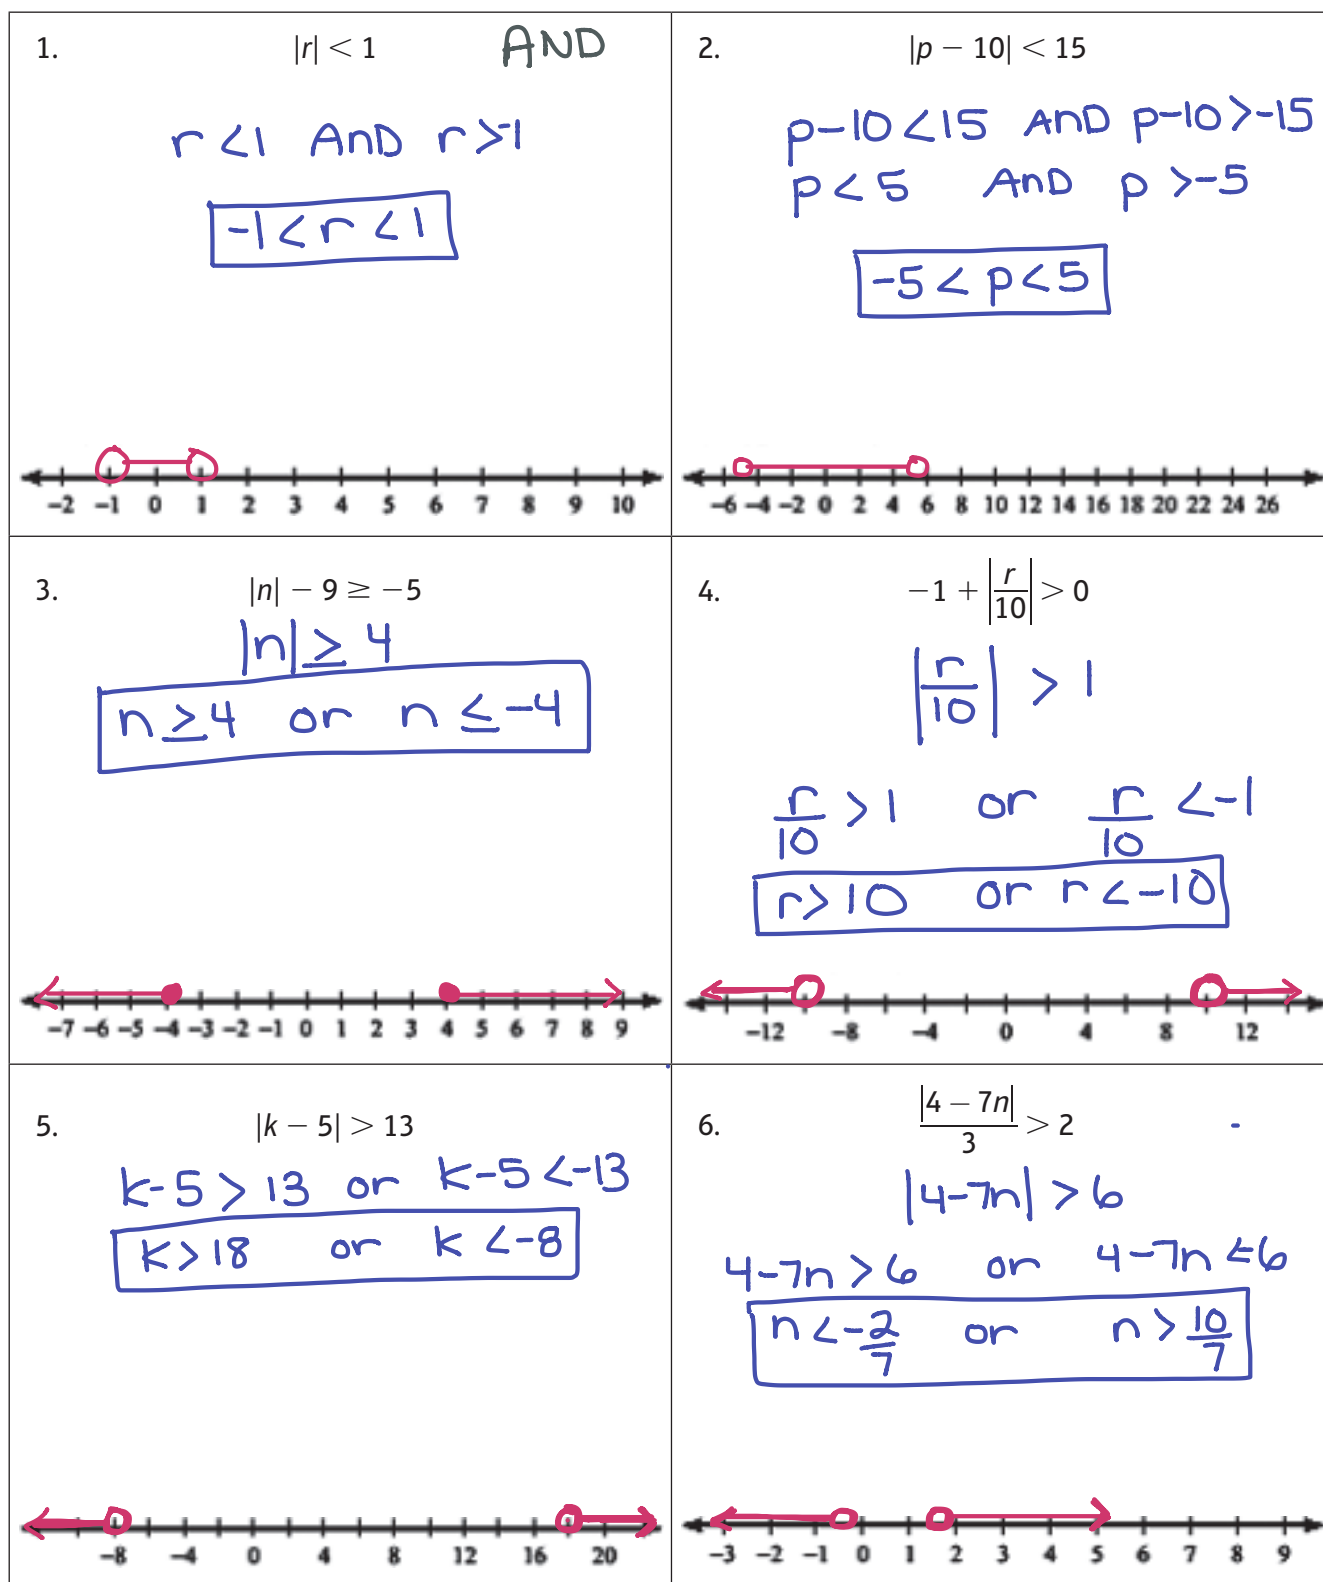 1. |r| < 1 AND
r < 1 AND r > -1
-1 < r < 1
-2 -1 0 1 2 3 4 5 6 7 8 9 10
2. |p − 10| < 15
p-10 < 15 AND p-10 > -15
p < 5 AnD p > -5
-5 < p < 5
-6 -4 -2 0 2 4 6 8 10 12 14 16 18 20 22 24 26
3. |n| − 9 ≥ −5
|n| ≥ 4
n ≥ 4 or n ≤ -4
-7 -6 -5 -4 -3 -2 -1 0 1 2 3 4 5 6 7 8 9
4. −1 + |r/10| > 0
|r/10| > 1
r/10 > 1 or r/10 < -1
r > 10 or r < -10
-12 -8 -4 0 4 8 12
5. |k − 5| > 13
k-5 > 13 or k-5 < -13
k > 18 or k < -8
-8 -4 0 4 8 12 16 20
6. |4 − 7n|/3 > 2
|4-7n| > 6
4-7n > 6 or 4-7n < -6
n < -2/7 or n > 10/7
-3 -2 -1 0 1 2 3 4 5 6 7 8 9